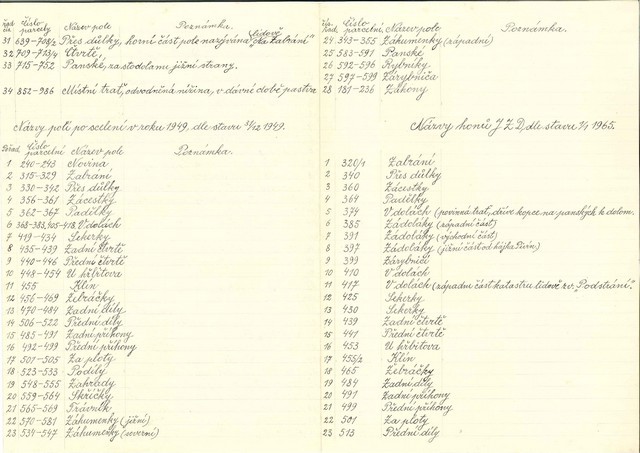 řád čís. číslo parcely Název pole Poznámka.
31 639-708/2 Přes důlky, horní část pole nazývána lidově „Na Zabrání"
32 709-723/4 Čtvrtě,
33 715-752 Panské, za stodolami jižní strany.
34 852-986 Místní trať, odvodněná nížina, v dávné době pastvina
Názvy polí po scelení v roku 1949, dle stavu 31/12 1949.
Pořad číslo parcelní Název pole Poznámka.
1 240-243 Novina
2 315-329 Zabrání
3 330-342 Přes důlky
4 356-361 Zácestky
5 362-367 Padělky
6 368-383, 405-418, V dolách
7 419-434 Sekerky
8 435-439 Zadní čtvrtě
9 440-446 Přední čtvrtě
10 448-454 U hřbitova
11 455 Klín
12 456-469 Žebráčky
13 470-484 Zadní díly
14 506-522 Přední díly
15 485-491 Zadní příhony
16 492-499 Přední příhony
17 501-505 Za ploty
18 523-533 Podíly
19 548-555 Zahrady
20 559-564 Skříčky
21 565-569 Trávník
22 570-581 Záhumenky (jižní)
23 534-547 Záhumenky (severní)
čís. řad. číslo parcelní Název pole Poznámka.
24 343-355 Záhumenky (západní)
25 583-591 Panské
26 592-596 Rybníky
27 597-599 Zárybničá
28 181-236 Záhony
Názvy honů JZD, dle stavu 1/1 1965.
1 320/1 Zabrání
2 340 Přes důlky
3 360 Zácestky
4 364 Padělky
5 374 V dolách (povízná trať, dříve kopce na panských k dolom
6 385 Zádoláky (západní část)
7 391 Zádoláky (východní část)
8 397 Zádoláky (jižní část od hájka Písin)
9 399 Zárybničí
10 410 V dolách
11 417 V dolách (západní část katastru lidově zv. „Podstrání"
12 425 Sekerky
13 430 Sekerky
14 439 Zadní čtvrtě
15 441 Přední čtvrtě
16 453 U hřbitova
17 455/2 Klín
18 465 Žebráčky
19 484 Zadní díly
20 491 Zadní příhony
21 499 Přední příhony
22 501 Za ploty
23 513 Přední díly